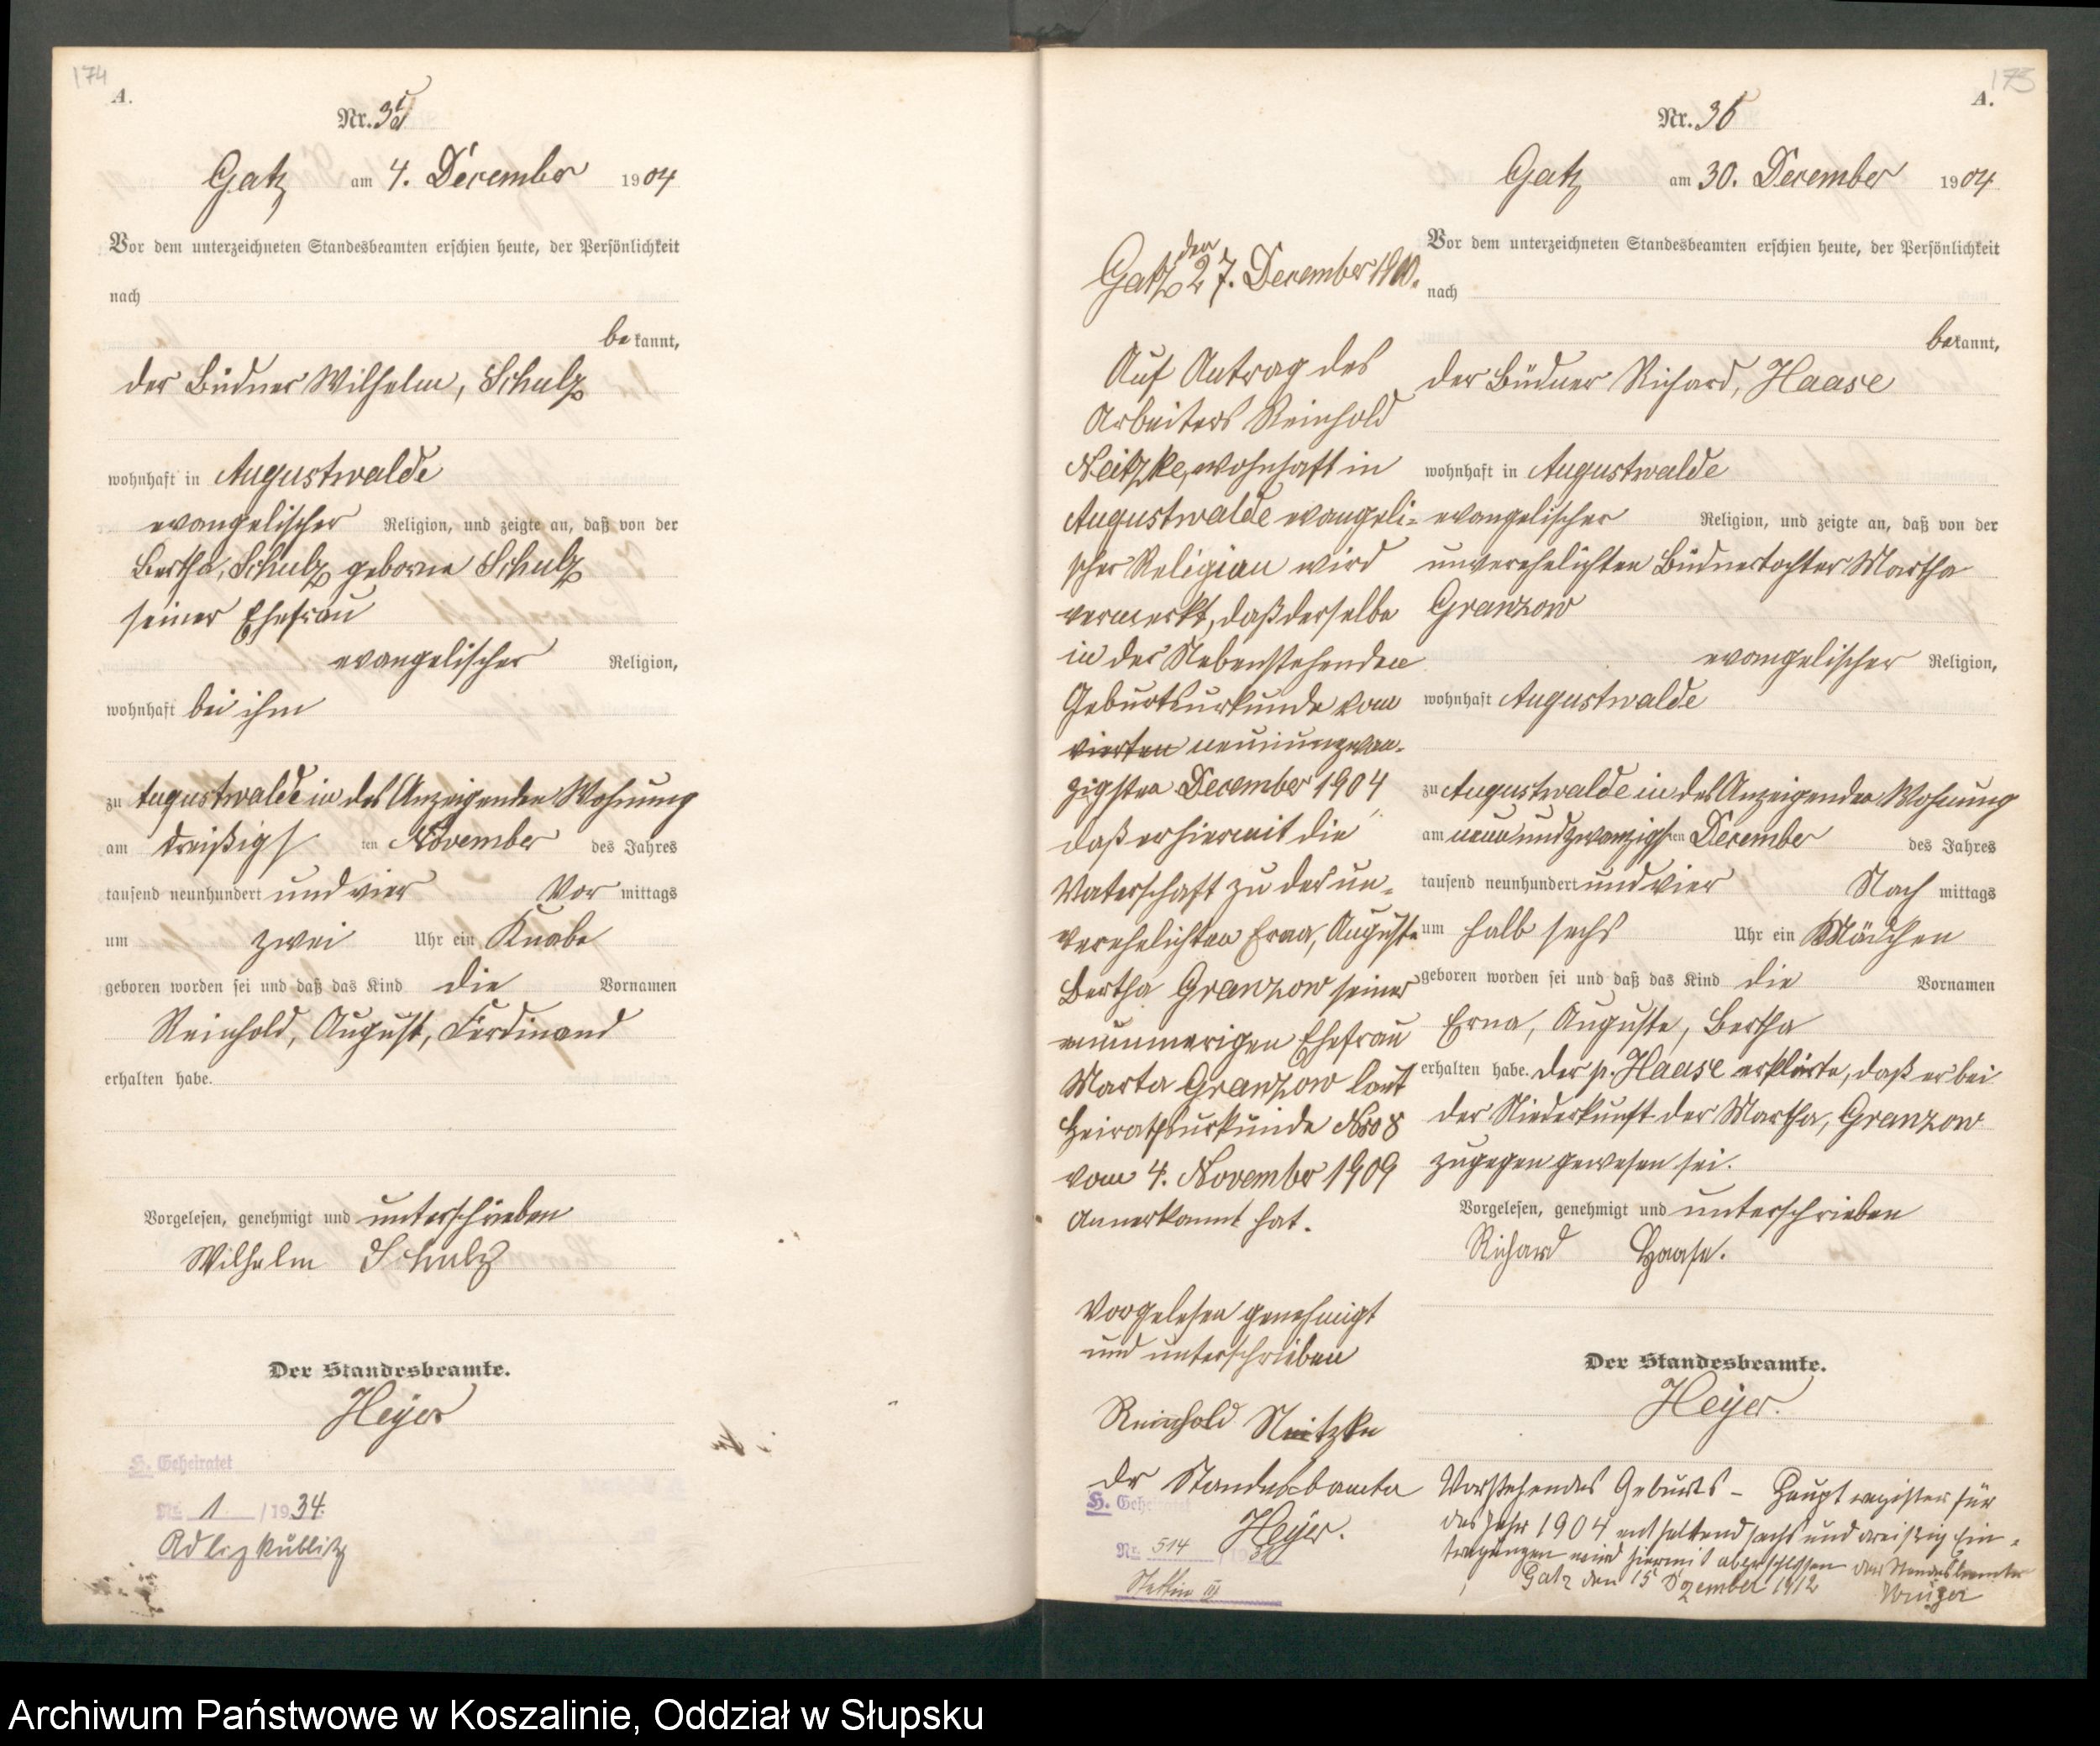 174
A.
Nr. 35
Gatz am 4. December 1904
Vor dem unterzeichneten Standesbeamten erschien heute, der Persönlichkeit
nach
bekannt,
der Büdner Wilhelm, Schulz
wohnhaft in Augustwalde
evangelischer Religion, und zeigte an, daß von der
Bertha, Schulz geborne Schulz
seiner Ehefrau
evangelischer Religion,
wohnhaft bei ihm
zu Augustwalde in des Anzeigenden Wohnung
am dreißigsten November des Jahres
tausend neunhundert und vier Vor mittags
um zwei Uhr ein Knabe
geboren worden sei und daß das Kind die Vornamen
Reinhold, August, Ferdinand
erhalten habe.
Vorgelesen, genehmigt und unterschrieben
Wilhelm Schulz
Der Standesbeamte.
Heyer
H. Geheiratet
Nr. 1 /1934.
Adlig Kublitz
Gatz den 27. December 1910.
Auf Antrag des
Arbeiters Reinhold
Neitzke, wohnhaft in
Augustwalde evangeli-
scher Religion wird
vermerkt, daß derselbe
in der Nebenstehenden
Geburtsurkunde vom
vierten neunundzwan-
zigsten December 1904
daß er hiermit die
Vaterschaft zu der un-
verehelichten Erna, Auguste
Bertha Granzow seiner
nunmerigen Ehefrau
Marta Granzow laut
Heirathsurkunde Nro 8
vom 4. November 1909
Annerkannt hat.
Vorgelesen genehmigt
und unterschrieben
Reinhold Neitzke
Der Standesbeamte
Heyer.
H. Geheiratet
Nr. 514 /19
Stettin III
173
A.
Nr. 36
Gatz am 30. December 1904
Vor dem unterzeichneten Standesbeamten erschien heute, der Persönlichkeit
nach
bekannt,
der Büdner Richard, Haase
wohnhaft in Augustwalde
evangelischer Religion, und zeigte an, daß von der
unverehelichten Büdnertochter Martha
Granzow
evangelischer Religion,
wohnhaft Augustwalde
zu Augustwalde in des Anzeigenden Wohnung
am neunundzwanzigsten December des Jahres
tausend neunhundert und vier Nach mittags
um halb sechs Uhr ein Mädchen
geboren worden sei und daß das Kind die Vornamen
Erna, Auguste, Bertha
erhalten habe. Der p. Haase erklärte, daß er bei
der Niederkunft der Martha, Granzow
zugegen gewesen sei.
Vorgelesen, genehmigt und unterschrieben
Richard Haase.
Der Standesbeamte.
Heyer.
Vorstehendes Geburts - Hauptregister für
das Jahr 1904 enthaltend sechs und dreißig Ein-
tragungen wird hiermit abgeschlossen der Standesbeamte
Gatz den 15 Dezember 1912
Archiwum Państwowe w Koszalinie, Oddział w Słupsku